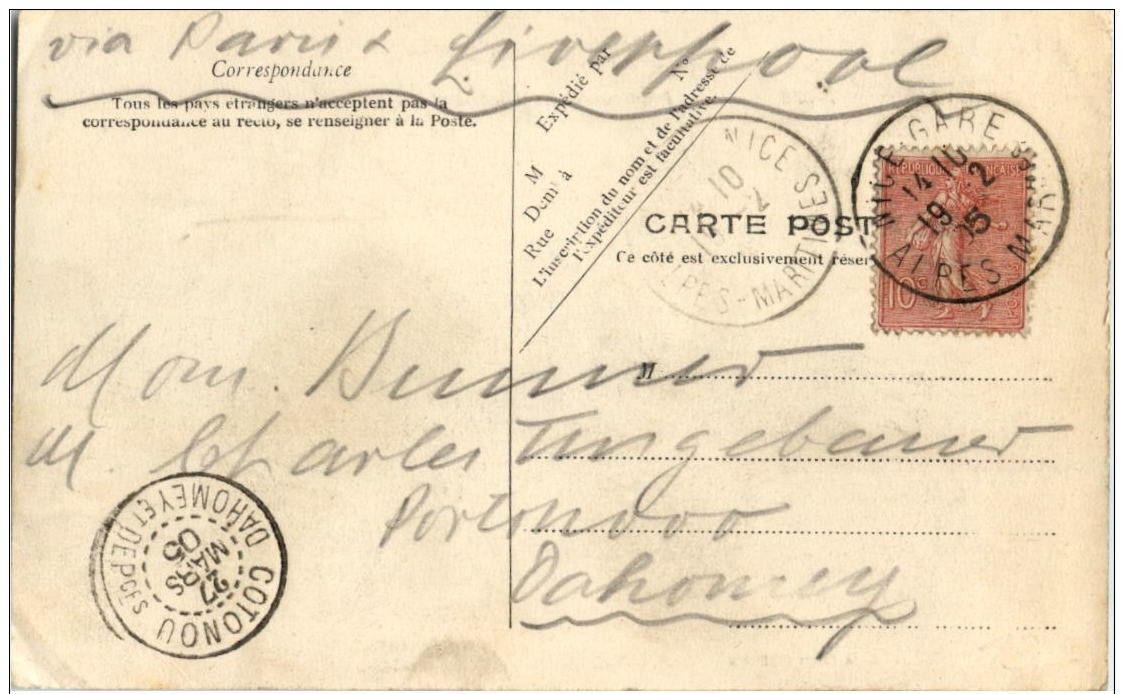 via Paris & Liverpool
Correspondance
Tous les pays étrangers n'acceptent pas la
correspondance au recto, se renseigner à la Poste.
N°
Expédié par
M
Demt à
Rue
L'inscription du nom et de l'adresse de
l'expéditeur est facultative.
NICE
10
2
ALPES-MARITIMES
NICE-GARE
14 10
19 2
05
ALPES MAR
REPUBLIQUE FRANÇAISE
10 c
CARTE POST
Ce côté est exclusivement réser
M
Mons.
M. Charles
Portonovo
Dahomey
COTONOU
27
MARS
05
DAHOMEY ET DEPCES